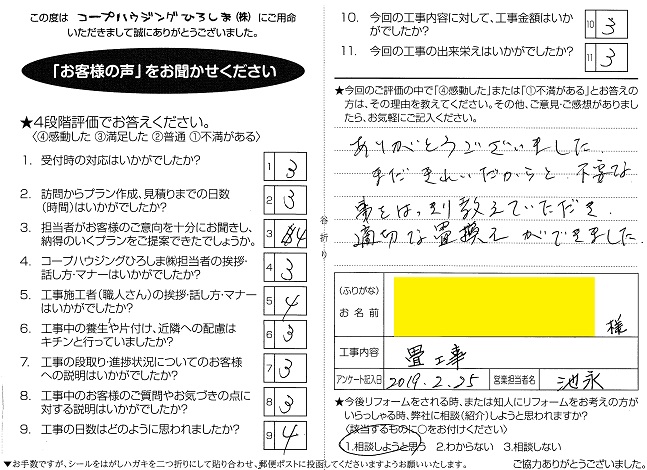 この度は コープハウジングひろしま(株) にご用命
いただきまして誠にありがとうございました。
「お客様の声」をお聞かせください
★4段階評価でお答えください。
〈④感動した ③満足した ②普通 ①不満がある〉
1. 受付時の対応はいかがでしたか? 1 3
2. 訪問からプラン作成、見積りまでの日数
(時間)はいかがでしたか? 2 3
3. 担当者がお客様のご意向を十分にお聞きし、
納得のいくプランをご提案できたでしょうか。 3 4
4. コープハウジングひろしま㈱担当者の挨拶・
話し方・マナーはいかがでしたか? 4 3
5. 工事施工者(職人さん)の挨拶・話し方・マナー
はいかがでしたか? 5 4
6. 工事中の養生や片付け、近隣への配慮は
キチンと行っていましたか? 6 3
7. 工事の段取り・進捗状況についてのお客様
への説明はいかがでしたか? 7 3
8. 工事中のお客様のご質問やお気づきの点に
対する説明はいかがでしたか? 8 3
9. 工事の日数はどのように思われましたか? 9 4
▼お手数ですが、シールをはがしハガキを二つ折りにして貼り合わせ、郵便ポストに投函してくださいますようお願いいたします。
谷折り
10. 今回の工事内容に対して、工事金額はいか
がでしたか? 10 3
11. 今回の工事の出来栄えはいかがでしたか? 11 3
★今回のご評価の中で「④感動した」または「①不満がある」とお答えの
方は、その理由を教えてください。その他、ご意見・ご感想がありまし
たら、お気軽にご記入ください。
ありがとうございました。
まだきれいだからと、不要な
事をはっきり教えていただき
適切な畳換えができました。
(ふりがな)
お名前 様
工事内容 畳工事
アンケート記入日 2019.2.25 営業担当者名 池永
★今後リフォームをされる時、または知人にリフォームをお考えの方が
いらっしゃる時、弊社に相談(紹介)しようと思われますか?
〈該当するものに○をお付けください〉
1.相談しようと思う 2.わからない 3.相談しない
ご協力ありがとうございました。